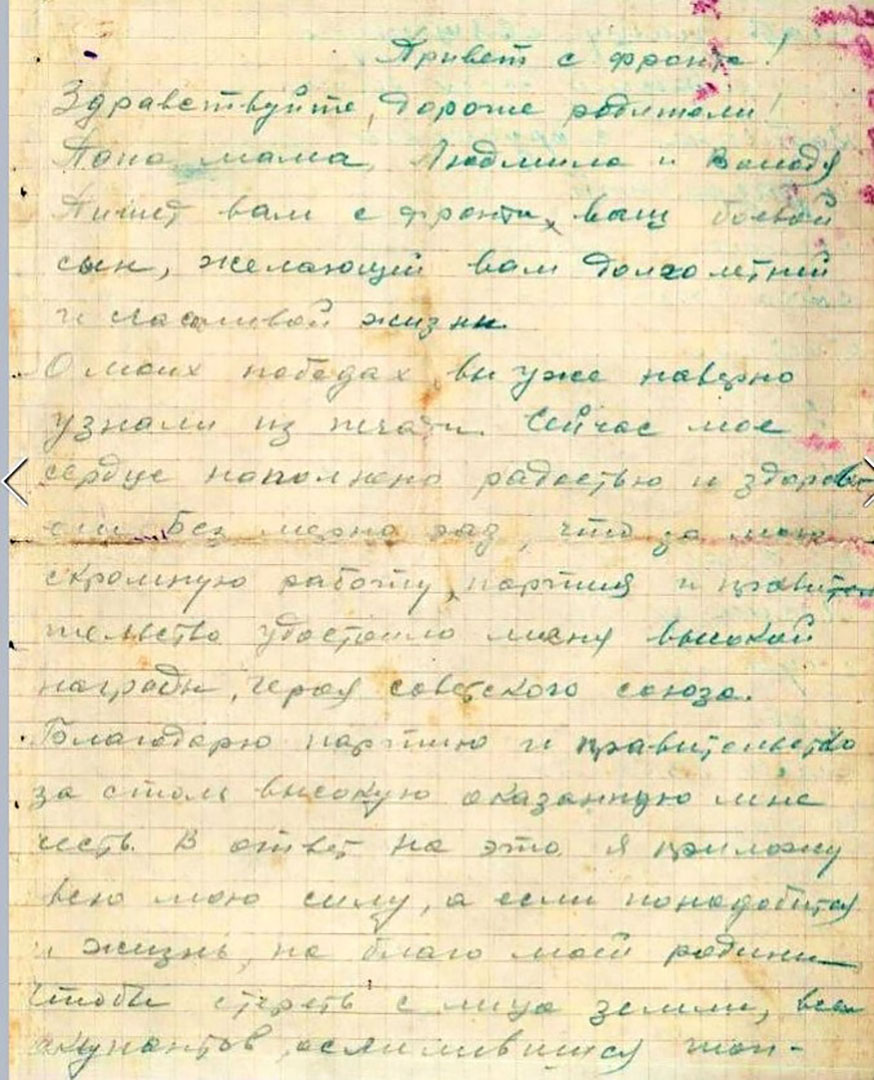 Привет с фронта!
Здравствуйте, дорогие родители!
Папа мама, Людмила и Володя
Пишет вам с фронта, ваш боевой
сын, желающий вам долголетней
и счасливой жизни.
О моих победах, вы уже наверно
узнали из печати. Сейчас мое
сердце наполнено радостью и здоровь
ем. Без мерно рад, что за мою
скромную работу, партия и правител
тельство удостоило меня высокой
награды, героя советского союза.
Благодарю партию и правительство
за столь высокую оказанную мне
честь. В ответ на это я приложу
всю мою силу, а если понадобится
и жизнь, на благо моей родины
чтобы стереть с лица земли, всех
окупантов, осмелившися топ-